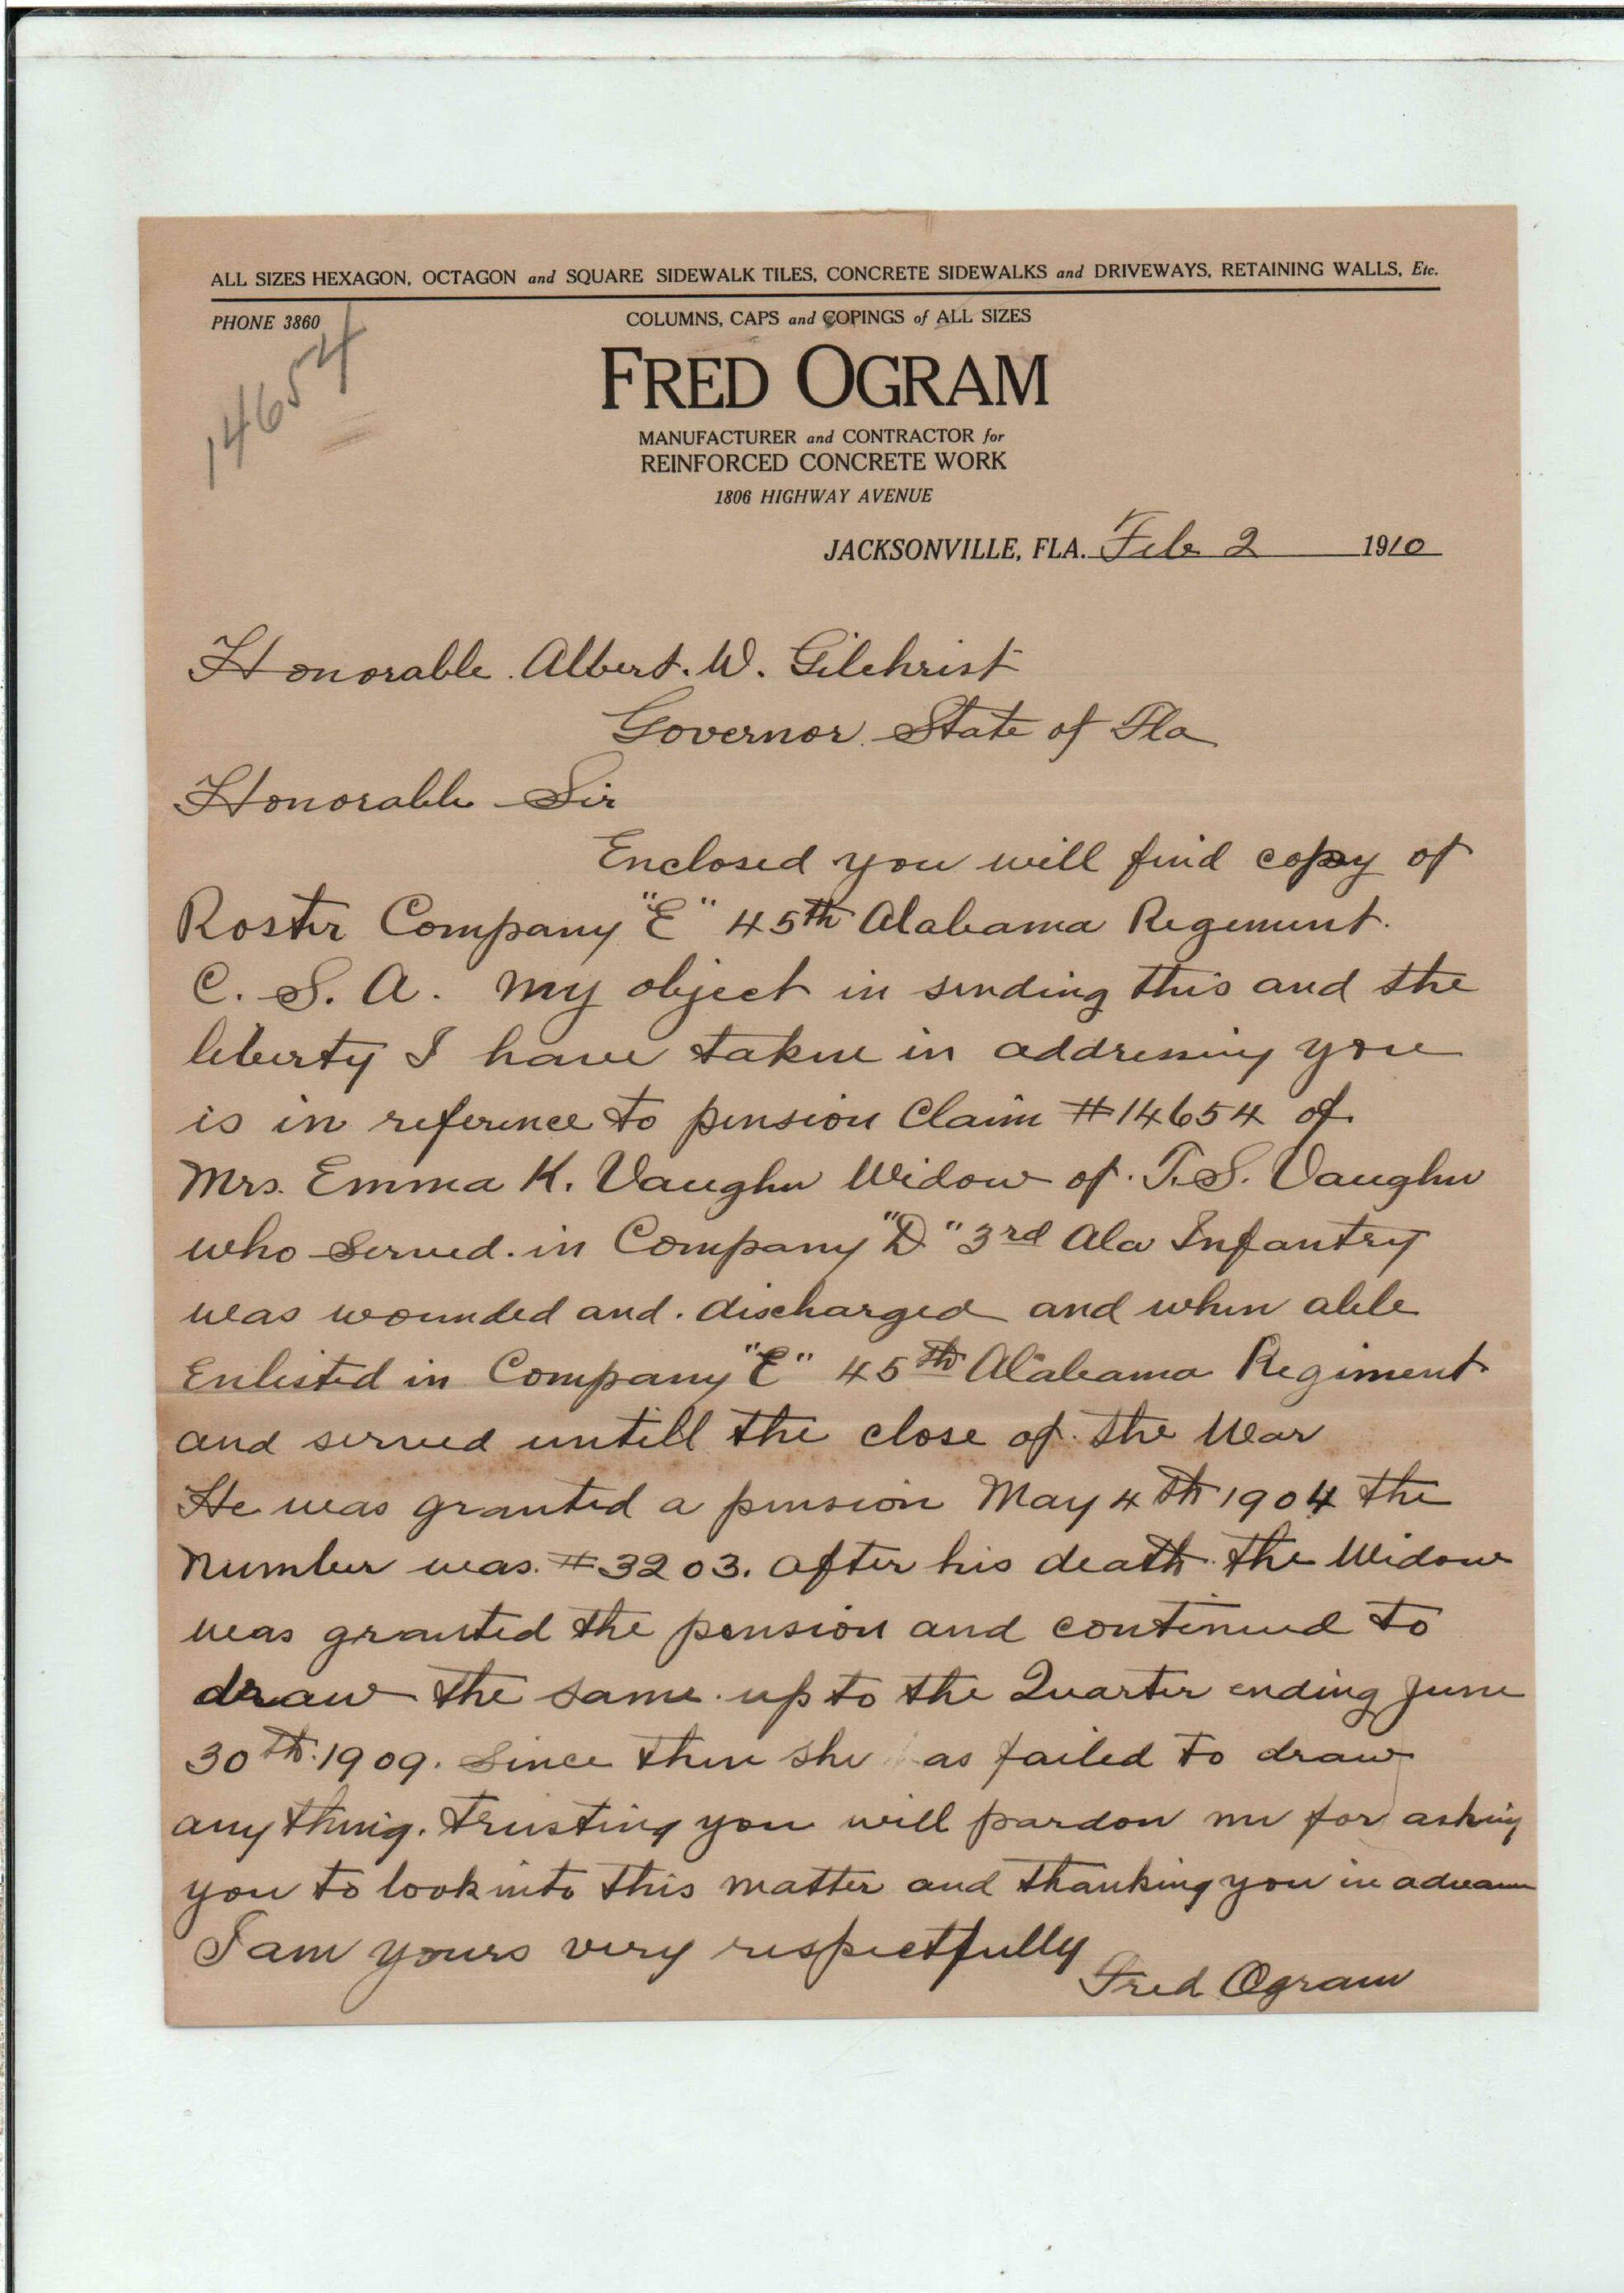 ALL SIZES HEXAGON, OCTAGON and SQUARE SIDEWALK TILES, CONCRETE SIDEWALKS and DRIVEWAYS, RETAINING WALLS, Etc.
PHONE 3860
COLUMNS, CAPS and COPINGS of ALL SIZES
14654
FRED OGRAM
MANUFACTURER and CONTRACTOR for
REINFORCED CONCRETE WORK
1806 HIGHWAY AVENUE
JACKSONVILLE, FLA. Feb 2 1910
Honorable Albert. W. Gilchrist
Governor State of Fla
Honorable Sir
Enclosed you will find copy of
Roster Company "E" 45th Alabama Regement.
C. S. A. My object in sending this and the
liberty I have taken in addressing you
is in reference to pension Claim #14654 of
Mrs. Emma K. Vaughn Widow of T. S. Vaughn
who served in Company "D" 3rd Ala Infantry
was wounded and discharged and when able
Enlisted in Company "E" 45th Alabama Regiment
and served untill the close of the War
He was granted a pension May 4th 1904 the
Number was #3203. after his death the Widow
was granted the pension and continued to
draw the same up to the Quarter ending June
30th 1909. Since then she has failed to draw
any thing. Trusting you will pardon me for asking
you to look into this matter and thanking you in advance
I am yours very respectfully
Fred Ogram